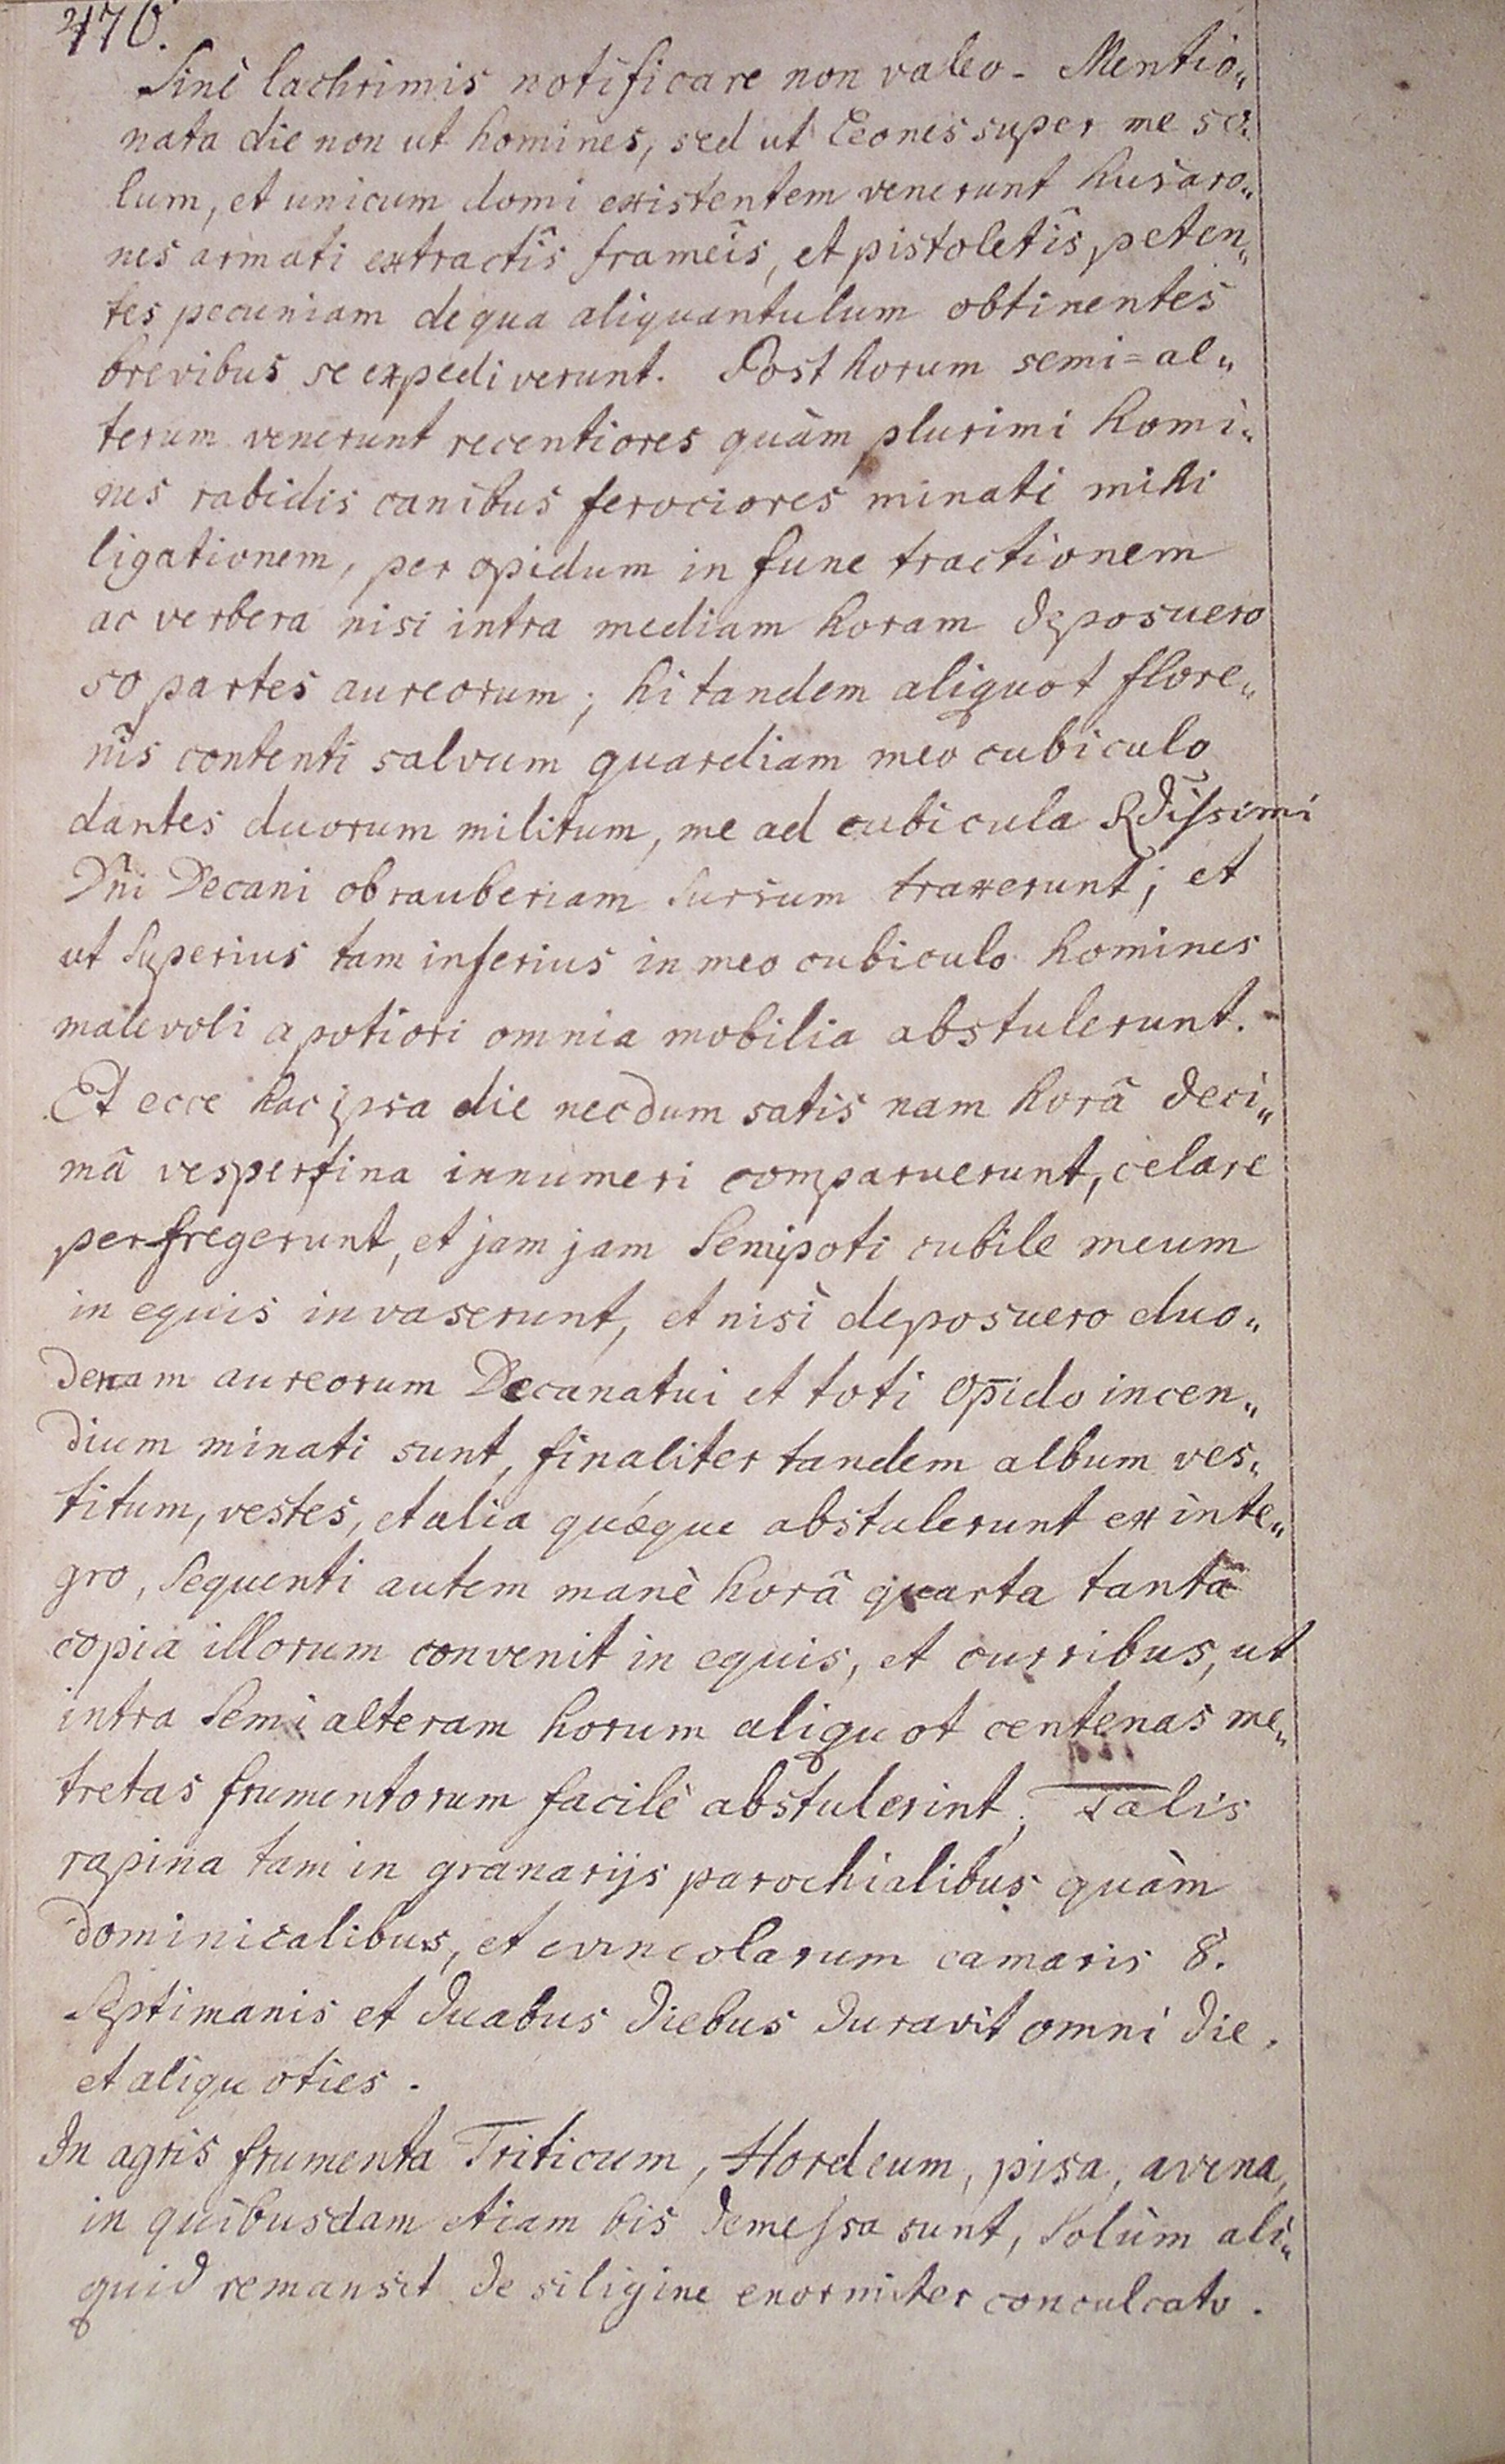 470.
Sinè lachrimis notificare non valeo - Mentio„
nata die non ut homines, sed ut Leones super me so„
lum, et unicum domi existentem venerunt husaro„
nes armati extractîs frameîs, et pistoletîs peten„
tes pecuniam de qua aliquantulum obtinentes
brevibus se expediverunt. Post horum semi=al„
terum venerunt recentiores quàm plurimi homi„
nes rabidis canibus ferociores minati mihi
ligationem, per opidum in fune tractionem
ac verbera nisi intra mediam horam deposuero
50 partes aureorum; hi tandem aliquot flore„
nîs contenti salvum guardiam meo cubiculo
dantes duorum militum, me ad cubicula Rdissimi
Dñi Decani ob rauberiam sursum traxerunt; et
ut superius tam inferius in meo cubiculo homines
malevoli a potiori omnia mobilia abstulerunt. -
Et ecce hac ipsa die necdum satis nam horâ deci„
mâ vespertina innumeri comparuerunt, celare
perfregerunt, et jam jam Semipoti cubile meum
in equis invaserunt, et nisi deposuero duo„
denam aureorum Decanatui et toti opido incen„
dium minati sunt, finaliter tandem album ves„
titum, vestes, et alia quæque abstulerunt ex inte„
gro, Sequenti autem manè horâ quarta tantâ
copia illorum convenit in equis, et curribus, ut
intra Semi alteram horum aliquot centenas me„
tretas frumentorum facilè abstulerint; Talis
rapina tam in granarijs parochialibus quàm
dominicalibus, et camaris 8.
Septimanis et duabus diebus duravit omni die,
et aliquoties.
In agris frumenta Triticum, Hordeum, pisa, avena,
in quibusdam etiam bis demessa sunt, Solùm ali„
quid remansit de siligine enormiter conculcato.